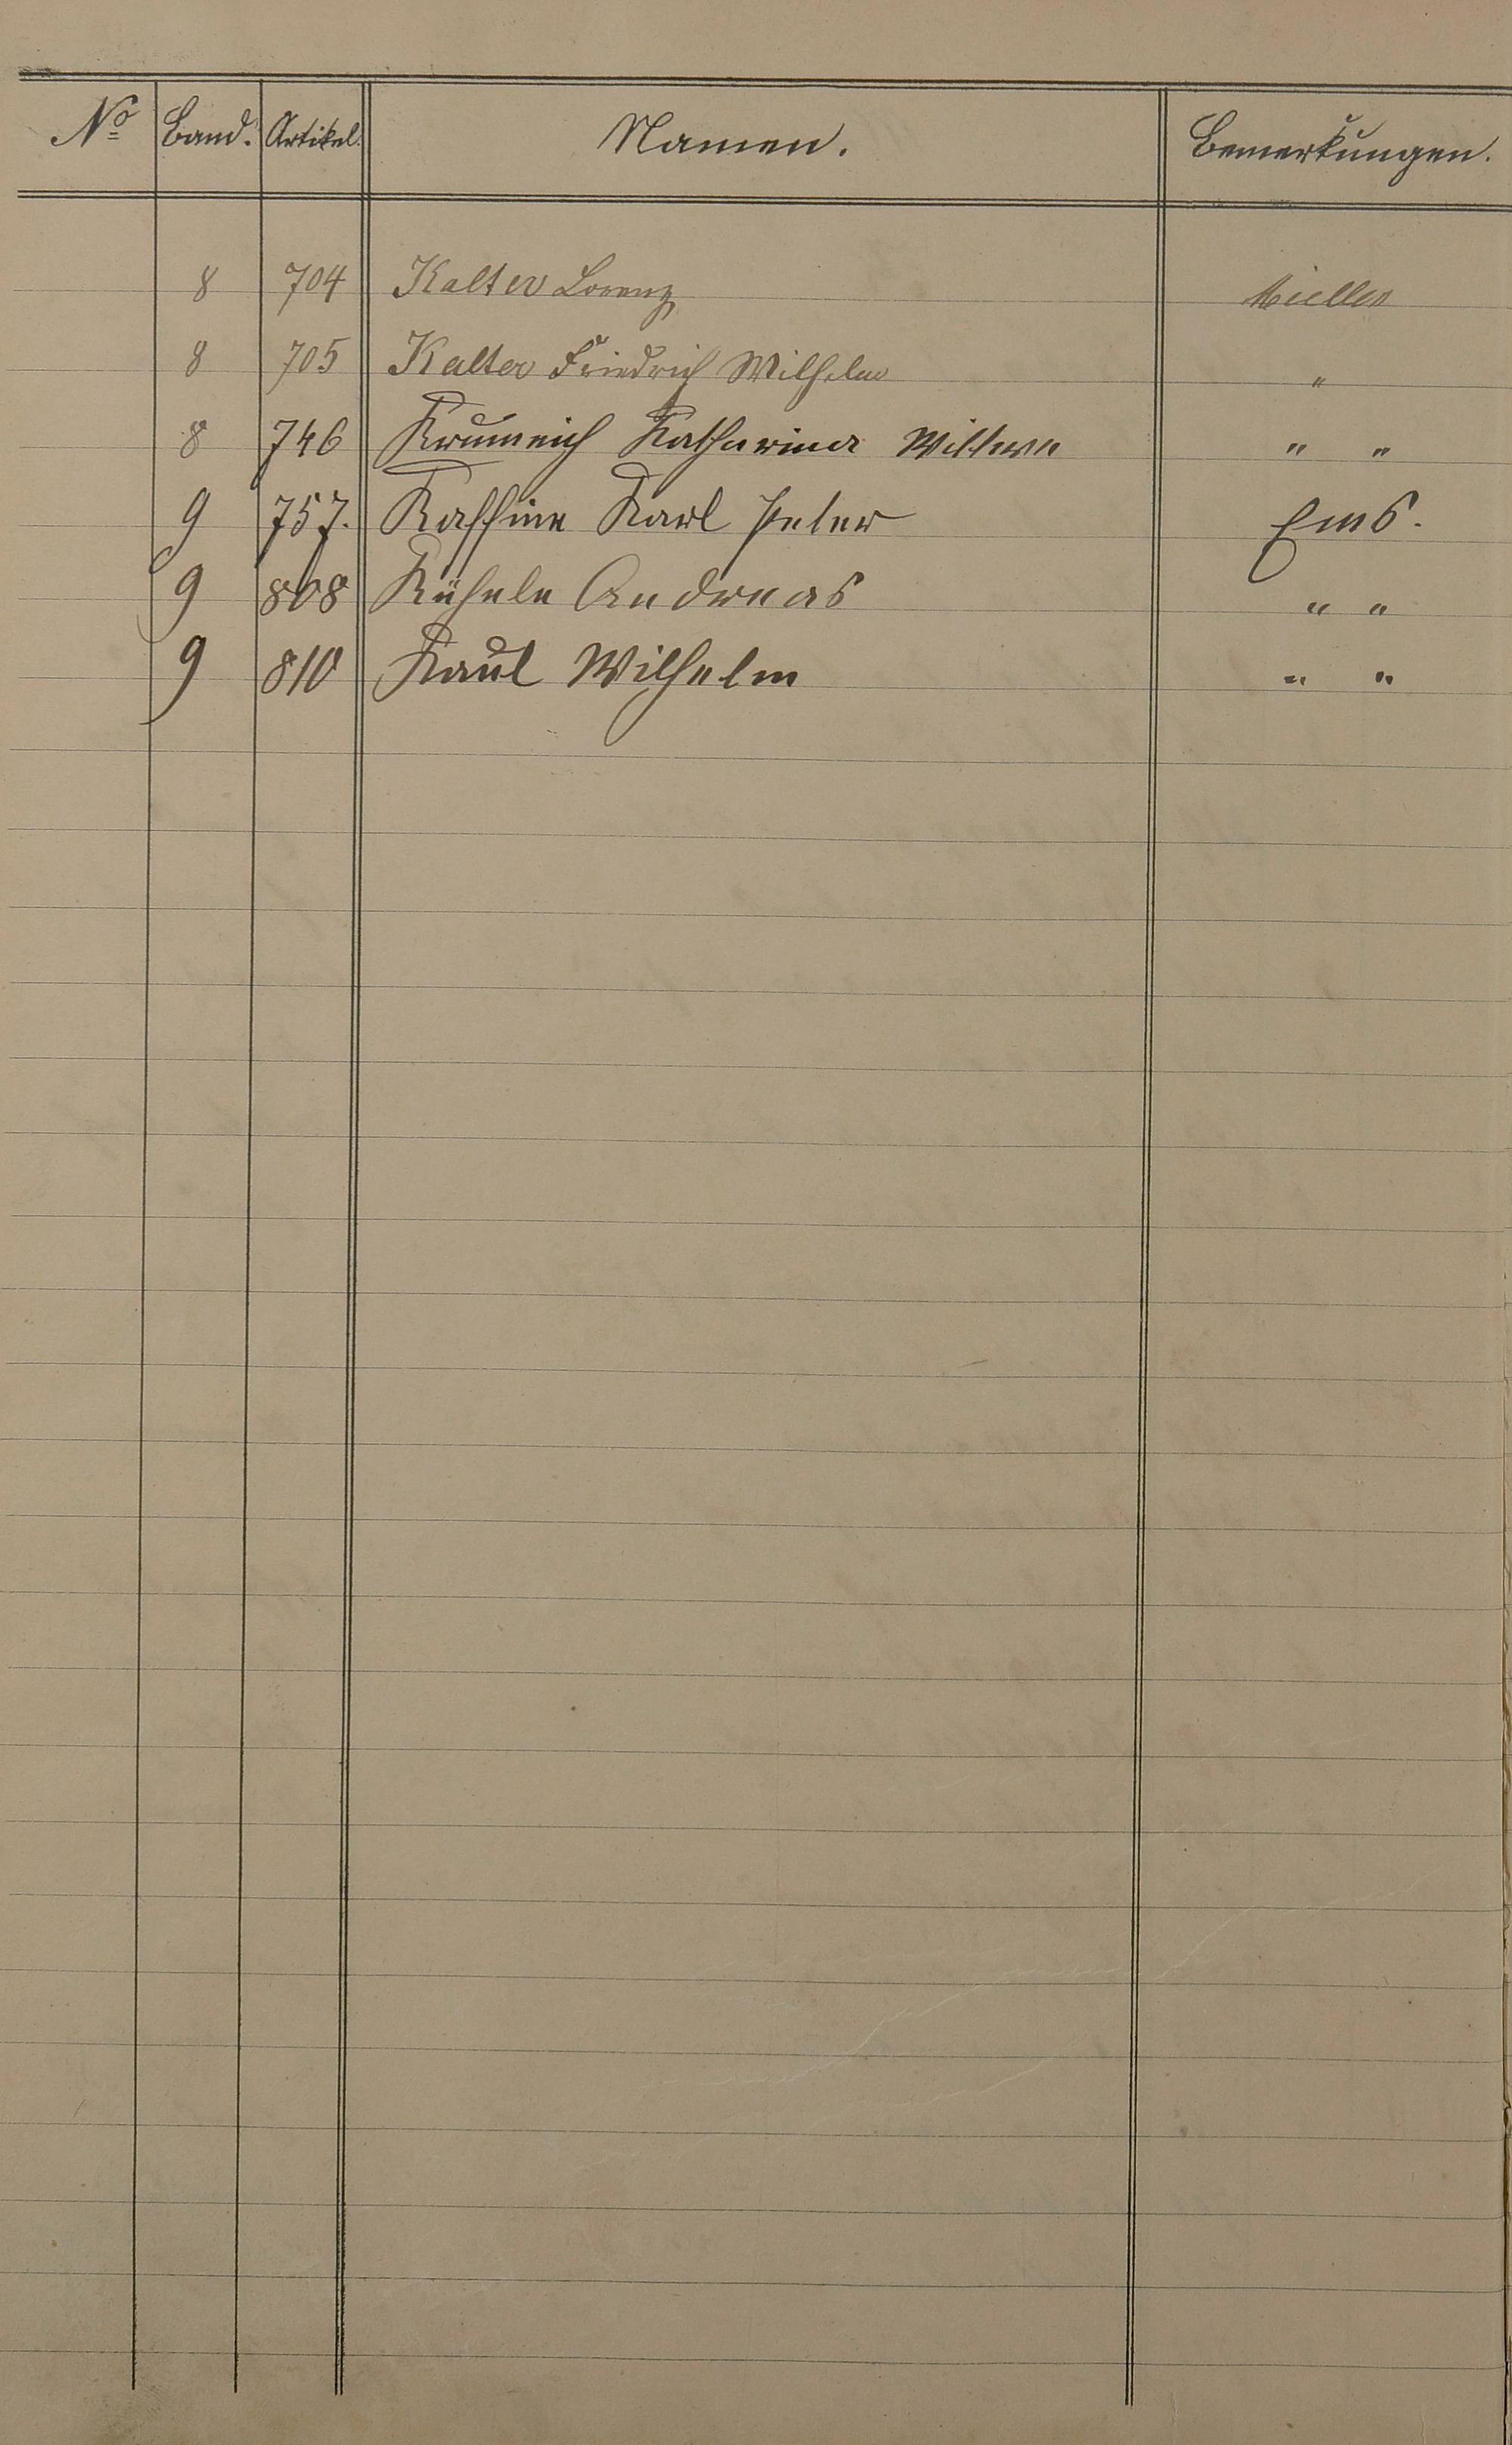 No Band. Artikel. Namen. Bemerkungen.
8 704 Kalter Lorenz Miellen
8 705 Kalter Friedrich Wilhelm "
8 746 Krumeich Katharina Wittwe " "
9 757. Karl Peter Ems.
9 808 Andreas " "
9 810 Kaul Wilhelm " "